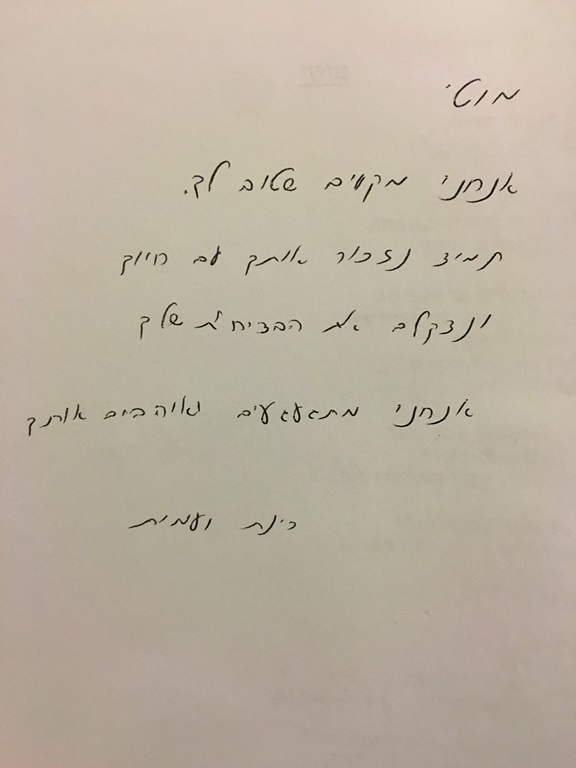 מוטי
אנחנו מקווים שטוב לך.
תמיד נזכור אותך עם חיוך
ונדקלם את הבדיחות שלך
אנחנו מתגעגעים ואוהבים אותך
רינת ועמית